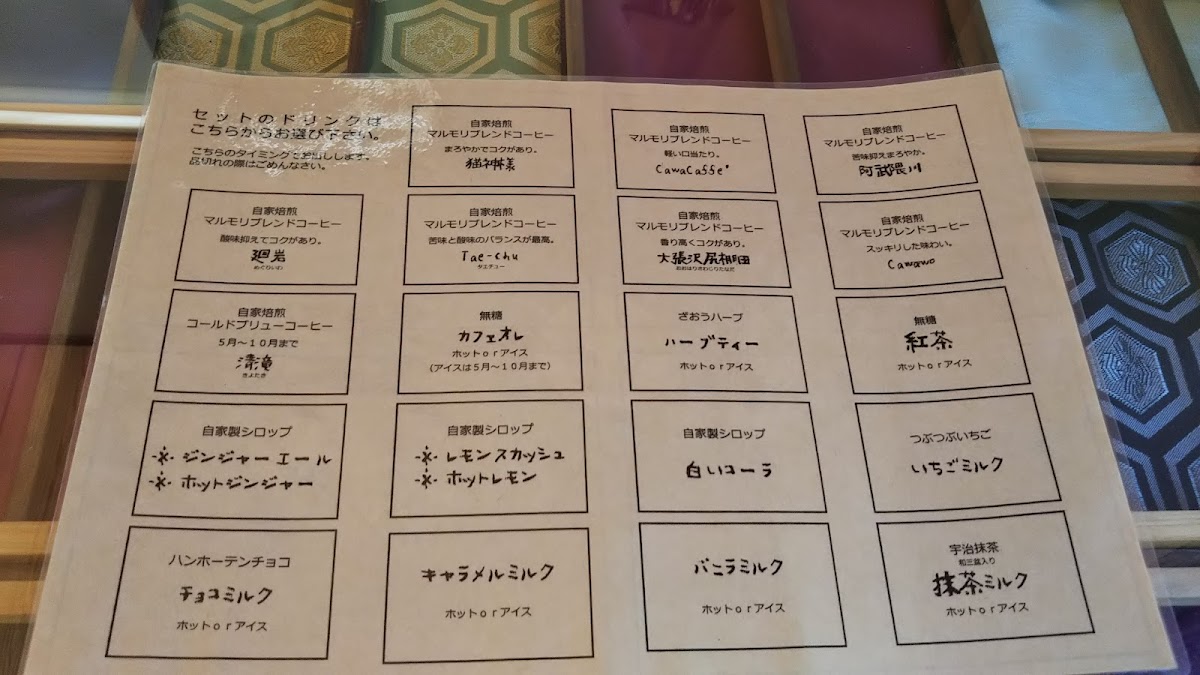 セットのドリンクは
こちらからお選び下さい。
こちらのタイミングでお出しします。
品切れの際はごめんなさい。
自家焙煎
マルモリブレンドコーヒー
まろやかでコクがあり。
猫神舞美
自家焙煎
マルモリブレンドコーヒー
軽い口当たり。
CawaCaffe'
自家焙煎
マルモリブレンドコーヒー
苦味抑えまろやか。
阿武隈川
自家焙煎
マルモリブレンドコーヒー
酸味抑えてコクがあり。
廻岩
めぐりいわ
自家焙煎
マルモリブレンドコーヒー
苦味と酸味のバランスが最高。
Tae-chu
タエチュー
自家焙煎
マルモリブレンドコーヒー
香り高くコクがあり。
大張沢尻棚田
おおはりさわじりたなだ
自家焙煎
マルモリブレンドコーヒー
スッキリした味わい。
Cawawo
自家焙煎
コールドブリューコーヒー
5月～10月まで
清滝
きよたき
無糖
カフェオレ
ホットorアイス
(アイスは5月～10月まで)
ざおうハーブ
ハーブティー
ホットorアイス
無糖
紅茶
ホットorアイス
自家製シロップ
ジンジャーエール
ホットジンジャー
自家製シロップ
レモンスカッシュ
ホットレモン
自家製シロップ
白いコーラ
つぶつぶいちご
いちごミルク
ハンホーテンチョコ
チョコミルク
ホットorアイス
キャラメルミルク
ホットorアイス
バニラミルク
ホットorアイス
宇治抹茶
和三盆入り
抹茶ミルク
ホットorアイス